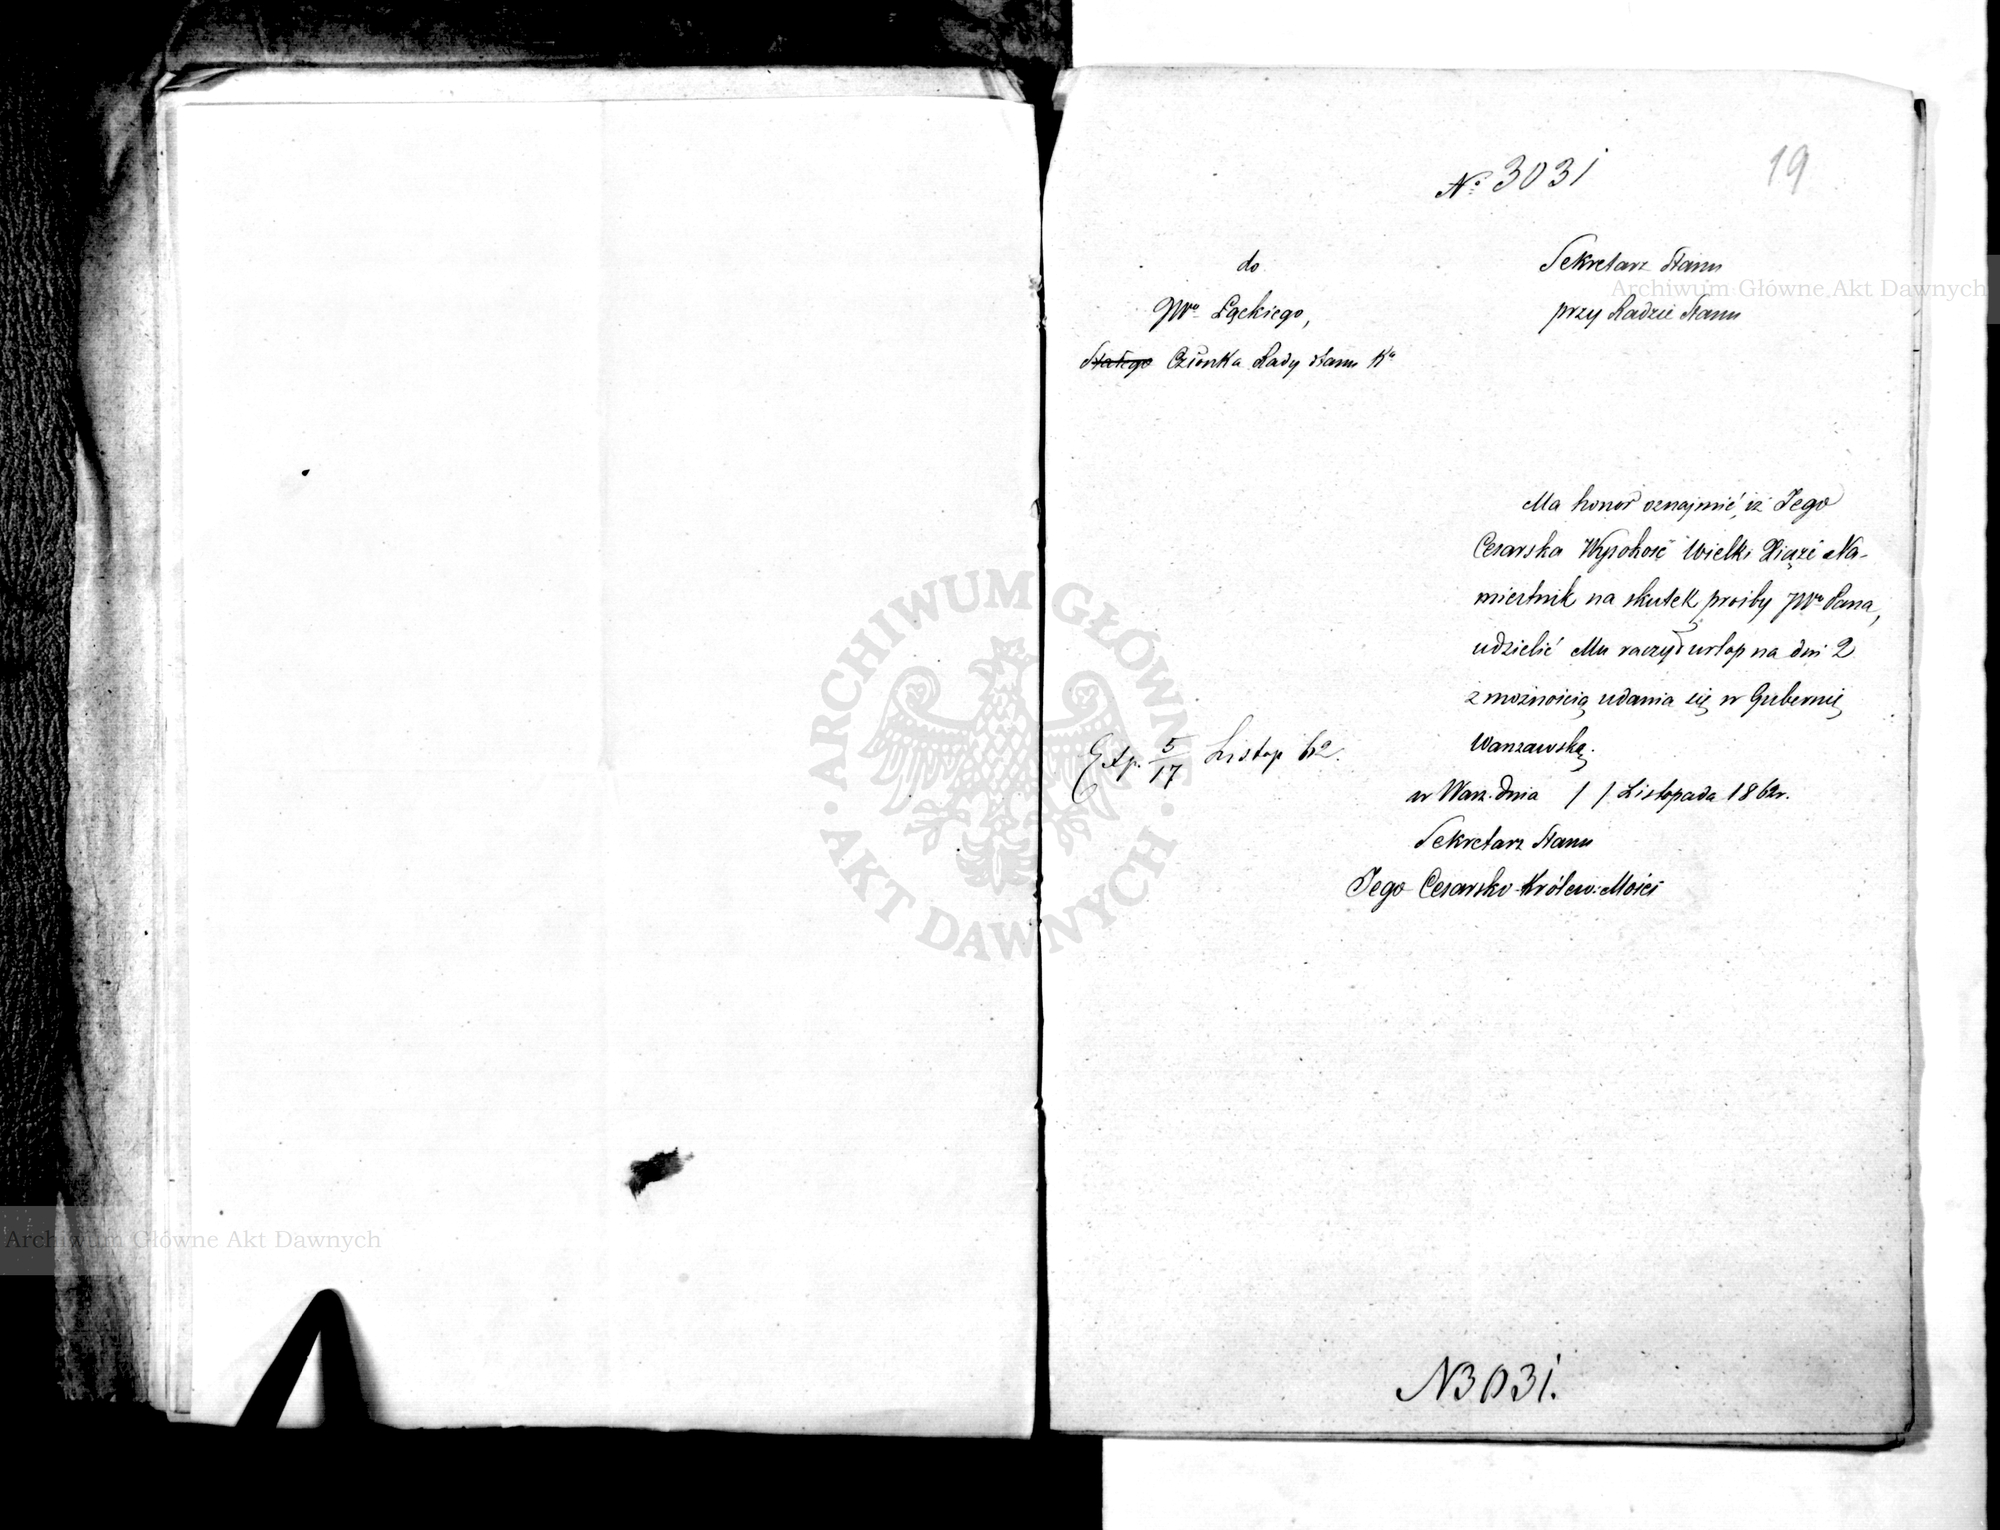 № 3031
19
do
JWo Łąckiego,
Stałego Członka Rady Stanu Ka
Sekretarz Stanu
przy Radzie Stanu
Ma honor oznajmić, iż Jego
Cesarska Wysokość Wielki Xiąże Na-
miestnik na skutek prośby JWo Pana,
udzielić Mu raczył urlop na dni 2
z możnością udania się w Gubernię
Warszawską.
Exp. 5/17 Listop 62.
w Warsz. dnia / / Listopada 1862r.
Sekretarz Stanu
Jego Cesarsko-Królew: Mości
N3031.
Archiwum Główne Akt Dawnych
Archiwum Główne Akt Dawnych
ARCHIWUM GŁÓWNE · AKT DAWNYCH ·